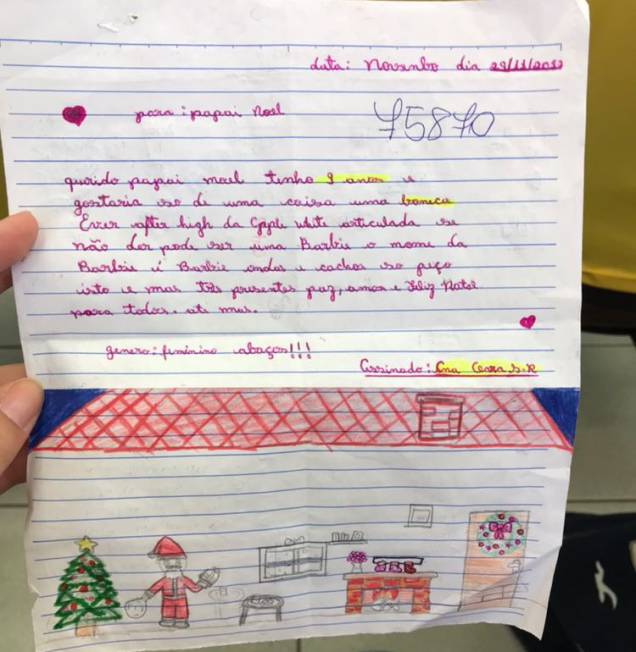 data: novenbro dia 29/11/2017
para: papai noel
75870
querido papai noel tenho 9 anos e
gostaria so de uma coisa uma boneca
Ever after high da Apple White articulada se
não der pode ser uma Barbie o nome da
Barbie é Barbie ondas e cachos so peço
isto e mas três presentes paz, amor e feliz Natal
para todos. até mas.
genero: feminino abaços!!!
Assinado: Ana Ceara S.R